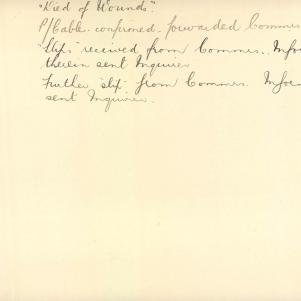 "Died of Wounds".
P/Cable. confirmed. forwarded Commis
"Slip" received from Commis. Infor
therein sent Inquirer
Further "slip" from Commis. Infor
sent Inquirer.